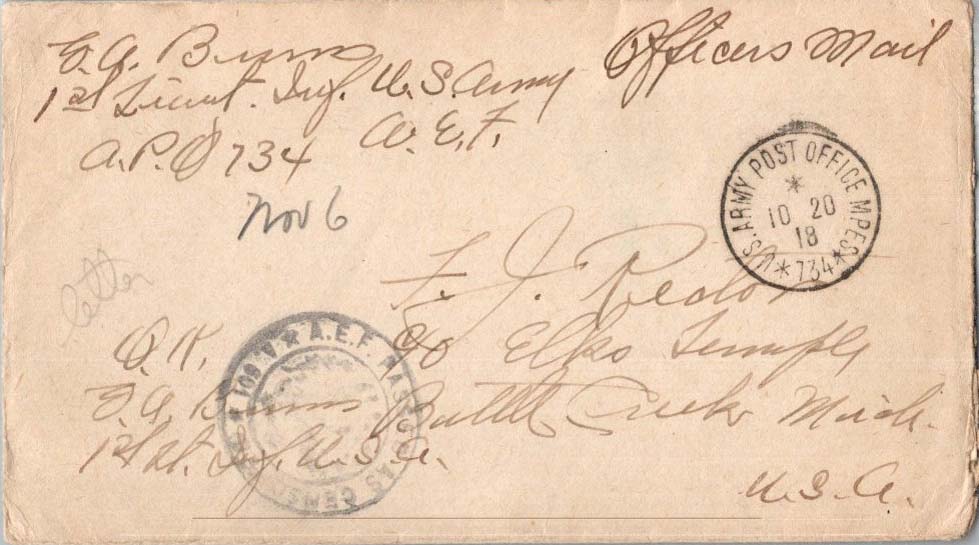 E. A. Burns
Officers Mail
1st Lieut. Inf. U.S. Army
A.P.O 734 A.E.F.
Nov 6
U.S. ARMY POST OFFICE MPES
10 20
18
734
letter
F. J.
O.K. c/o Elks Temple
E. A. Burns Battle Creek Mich.
1st Lt. Inf. U.S.A.
U.S.A.
A.E.F. PASSED AS CENSORED